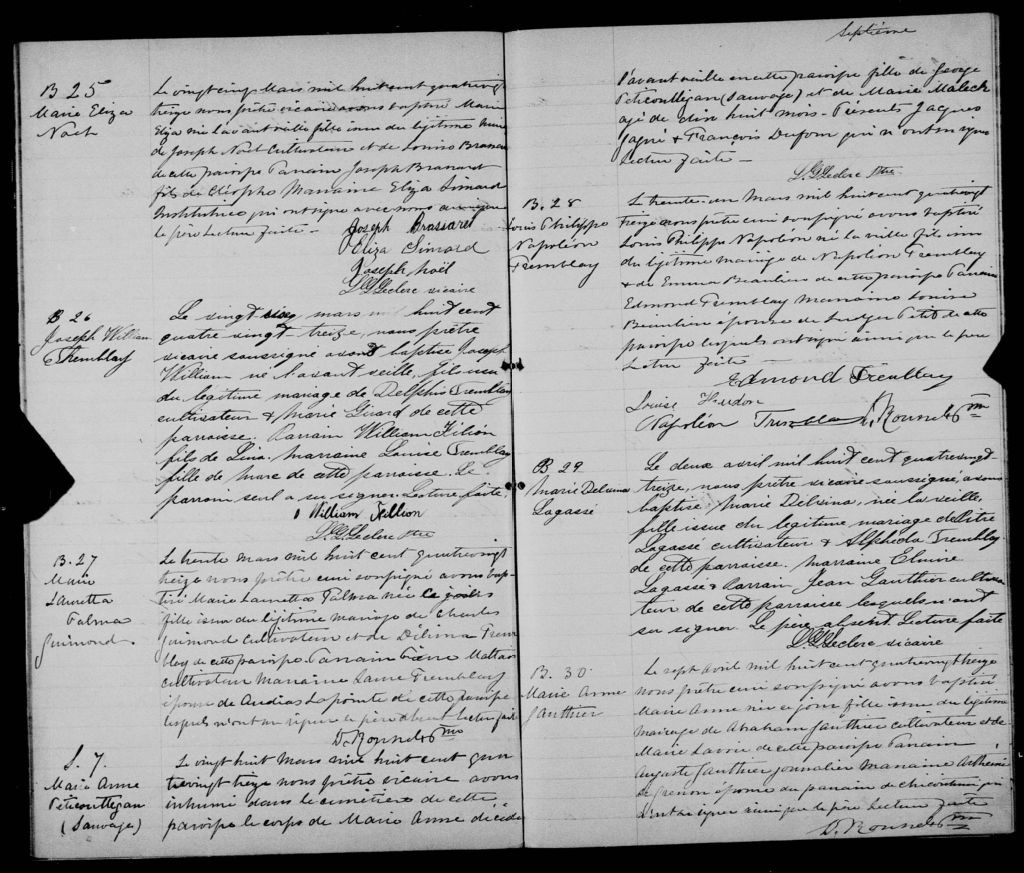 B 25
Marie Eliza
Noël
Le vingt cinq Mars mil huit cent quatrevingt
treize nous prêtre vicaire avons baptisé Marie
Eliza née l'avant veille fille issue du légitime
de Joseph Noël Cultivateur et de Louise Brassard
de cette paroisse Parrain Joseph Brassard
fils de Cléophe Marraine Eliza Simard
Institutrice qui ont signé avec nous
le père Lecture faite.
Joseph Brassard
Eliza Simard
Joseph Noël
Leclerc vicaire
B 26
Joseph William
Tremblay
Le vingt six mars mil huit cent
quatre vingt treize, nous prêtre
vicaire soussigné avons baptisé Joseph
William né l'avant veille, fils issu
du légitime mariage de Delphis Tremblay
cultivateur & Marie Girard de cette
parroisse. Parrain William Filion
fils de Marraine Louise Tremblay
fille de Marc de cette paroisse. Le
parrain seul a su signer. Lecture faite.
William Fillion
Leclerc Ptre
B. 27
Marie
Lauretta
Palma
Guimond
Le trente mars mil huit cent quatrevingt
treize nous prêtre curé soussigné avons bap-
tisé Marie Lauretta Palma née ce jour
fille issue du légitime mariage de Charles
Guimond Cultivateur et de Délima Trem
blay de cette paroisse. Parrain Pierre
cultivateur Marraine Laure Tremblay
épouse de Lapointe de cette paroisse
lesquels n'ont su signer le père absent Lecture faite
S. 7.
Marie Anne
(Sauvage)
Le vingt huit Mars mil huit cent qua
trevingt treize nous prêtre vicaire avons
inhumé dans le cimetière de cette
paroisse le corps de Marie Anne décédée
Septième
l'avant veille en cette paroisse fille de George
(Sauvage) et de Marie Maleck
agé de dixe huit mois. Présents Jacques
Gagné & François Dufour qui n'ont su signer
Lecture faite
Leclerc Ptre
B. 28
Louis Philippe
Napoléon
Tremblay
Le trente-un Mars mil huit cent quatrevingt
treize nous prêtre curé soussigné avons baptisé
Louis Philippe Napoléon né la veille fils issu
du légitime mariage de Napoléon Tremblay
& de Emma de cette paroisse Parrain
Edmond Tremblay Marraine Louise
épouse de Ludger Petit de cette
paroisse lesquels ont signé ainsi que le père
Lecture faite
Edmond Tremblay
Louise Hudon
Napoléon Tremblay
B 29
Marie Delvina
Lagassé
Le deux avril mil huit cent quatrevingt
treize, nous prêtre vicaire soussigné, avons
baptisé, Marie Delvina, née la veille,
fille issue du légitime mariage de Pitre
Lagassé cultivateur & Alphéda Tremblay
de cette parroisse. Marraine Elmire
Lagassé & Parrain Jean Gauthier cultiva
teur de cette parroisse lesquels n'ont
su signer. Le père absent. Lecture faite
Leclerc vicaire
B. 30
Marie Anne
Gauthier
Le sept Avril mil huit cent quatrevingt treize
nous prêtre curé soussigné avons baptisé
Marie Anne née ce jour fille issue du légitime
mariage de Abraham Gauthier cultivateur et de
Marie Lavoie de cette paroisse Parrain
Auguste Gauthier journalier Marraine
épouse du parrain de chicoutimi qui
n'ont su signer ainsi que le père Lecture faite